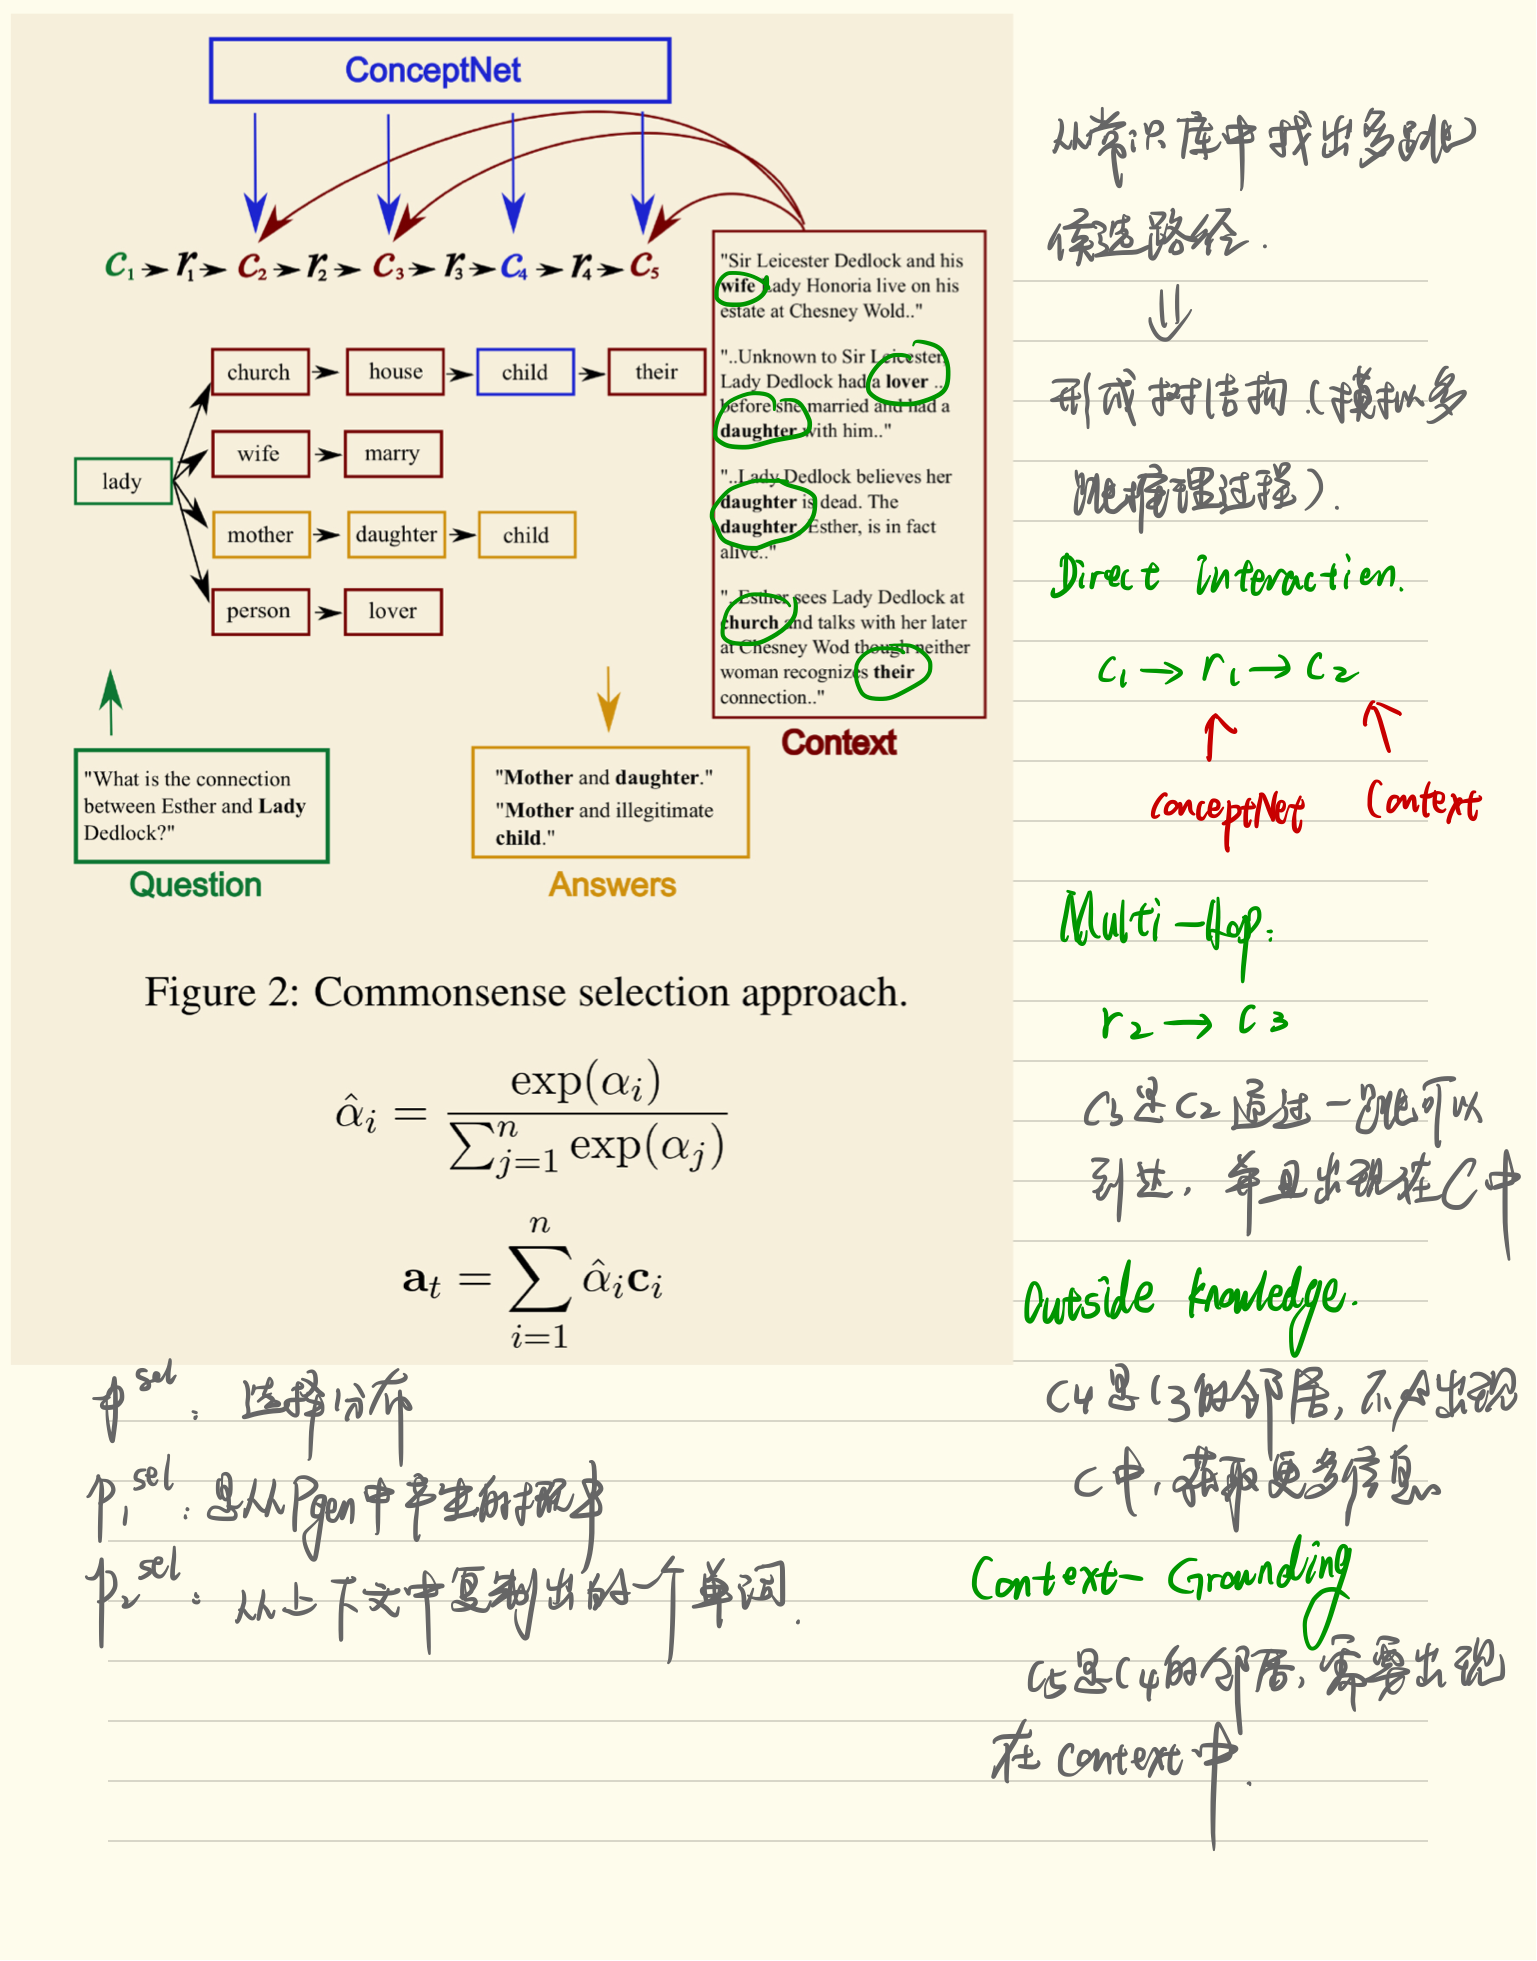 ConceptNet
c₁ → r₁ → c₂ → r₂ → c₃ → r₃ → c₄ → r₄ → c₅
church → house → child → their
wife → marry
lady
mother → daughter → child
person → lover
"Sir Leicester Dedlock and his
wife Lady Honoria live on his
estate at Chesney Wold.."
"..Unknown to Sir Leicester,
Lady Dedlock had a lover ..
before she married and had a
daughter with him.."
"..Lady Dedlock believes her
daughter is dead. The
daughter, Esther, is in fact
alive.."
"..Esther sees Lady Dedlock at
church and talks with her later
at Chesney Wod though neither
woman recognizes their
connection.."
Context
"What is the connection
between Esther and Lady
Dedlock?"
Question
"Mother and daughter."
"Mother and illegitimate
child."
Answers
Figure 2: Commonsense selection approach.
α̂ᵢ = exp(αᵢ) / ∑ⁿⱼ₌₁ exp(αⱼ)
aₜ = ∑ⁿᵢ₌₁ α̂ᵢcᵢ
从常识库中找出多跳
候选路径.
⇓
形成树结构.(模拟多
跳推理过程).
Direct Interaction.
C₁ → r₁ → C₂
ConceptNet Context
Multi-Hop:
r₂ → C₃
C₃是C₂通过一跳可以
到达, 并且出现在C中
Outside knowledge.
C₄是C₃的邻居, 不会出现
C中, 获取更多信息
Context-Grounding
C₅是C₄的邻居, 需要出现
在Context中.
p^sel: 选择分布
p₁^sel: 是从Pgen中产生的概率
p₂^sel: 从上下文中复制出的一个单词.